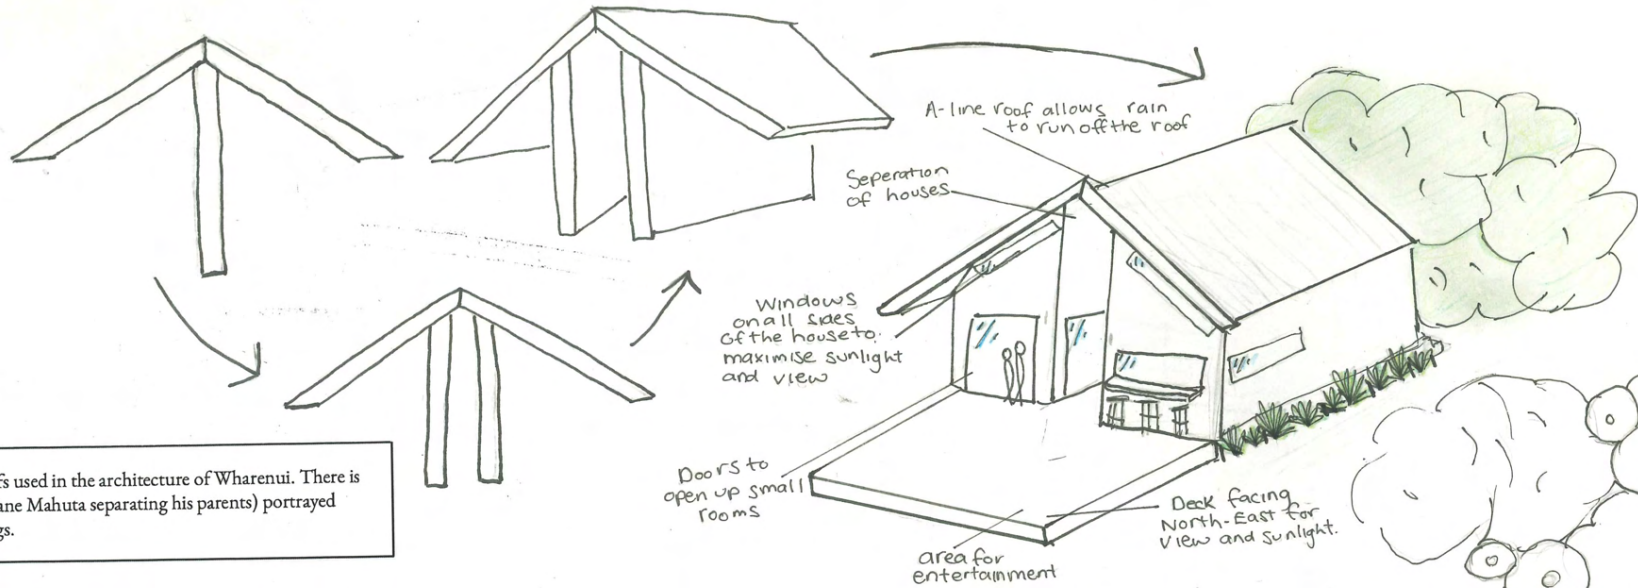 A-line roof allows rain
to run off the roof
Seperation
of houses
Windows
on all sides
of the house to
maximise sunlight
and view
Doors to
open up small
rooms
area for
entertainment
Deck facing
North-East for
view and sunlight.
used in the architecture of Wharenui. There is
Mahuta separating his parents) portrayed